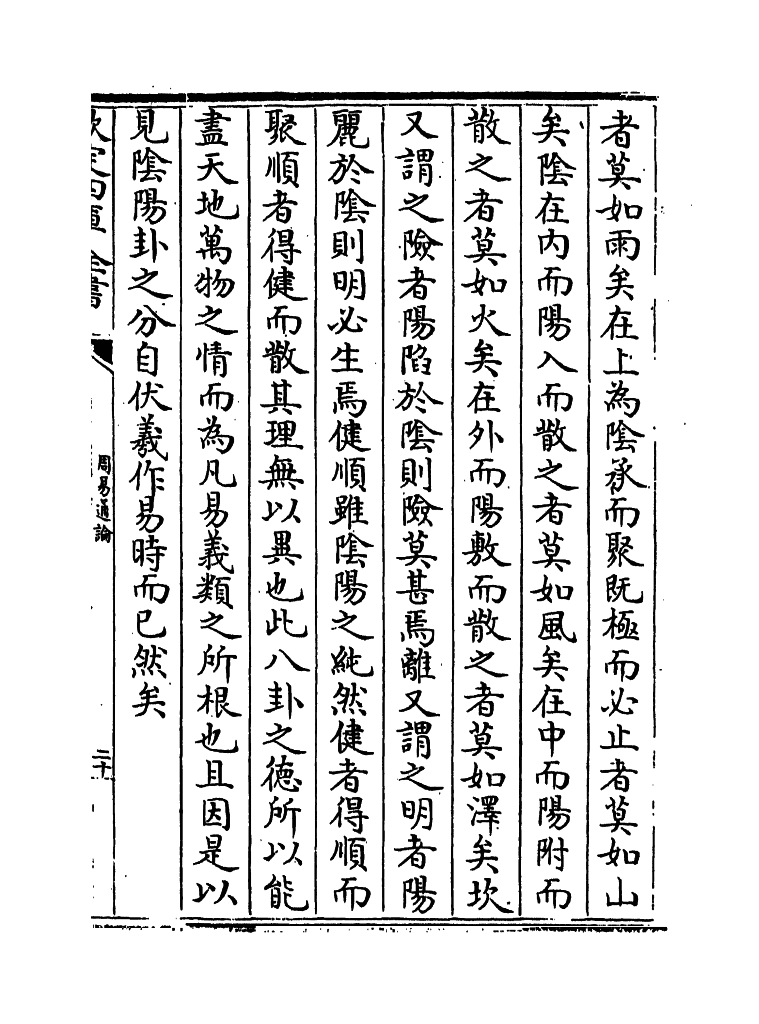 者莫如雨矣在上為陰承而聚既極而必止者莫如山
矣陰在内而陽入而散之者莫如風矣在中而陽附而
散之者莫如火矣在外而陽敷而散之者莫如澤矣坎
又謂之險者陽陷於陰則險莫甚焉離又謂之明者陽
麗於陰則明必生焉健順雖陰陽之純然健者得順而
聚順者得健而散其理無以異也此八卦之德所以能
盡天地萬物之情而為凡易義類之所根也且因是以
見陰陽卦之分自伏羲作易時而已然矣
欽定四庫全書
周易通論
二十